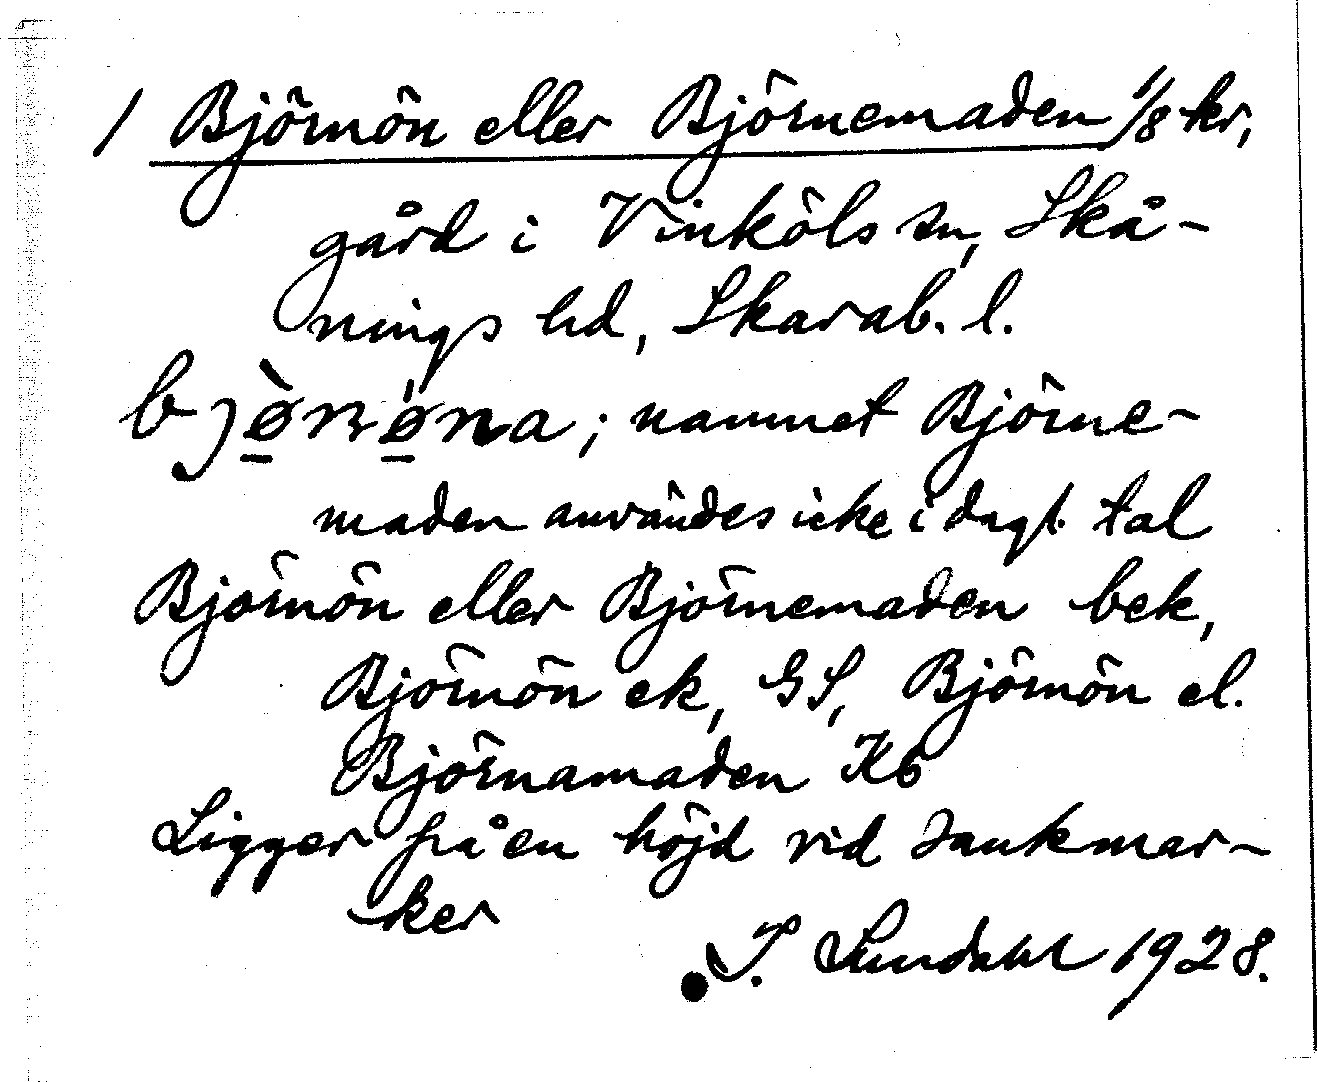 1 Björnön eller Björnemaden 1/8 kr,
gård i Vinköls sn, Skå-
nings hd, Skarab. l.
bjø̠̀nǿ̠na; namnet Björne-
maden användes icke i dagl. tal
Björnön eller Björnemaden bek,
Björnön ek, GS, Björnön el.
Björnamaden Kb
Ligger på en höjd vid sankmar-
ker
I. Sundahl 1928.